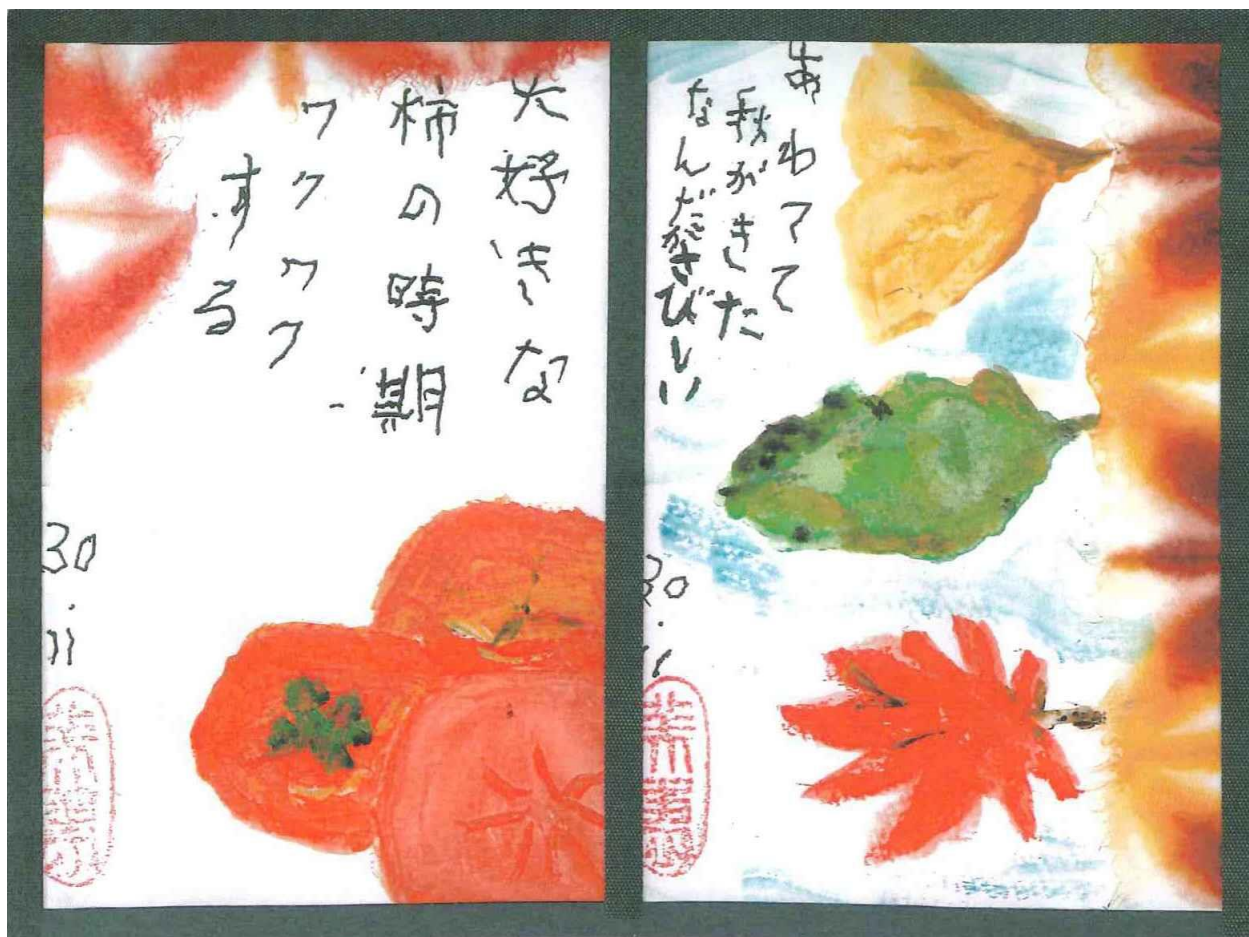 大好きな
柿の時期
ワクワク
する
30.11
あわてて
秋がきた
なんださびしい
30.11